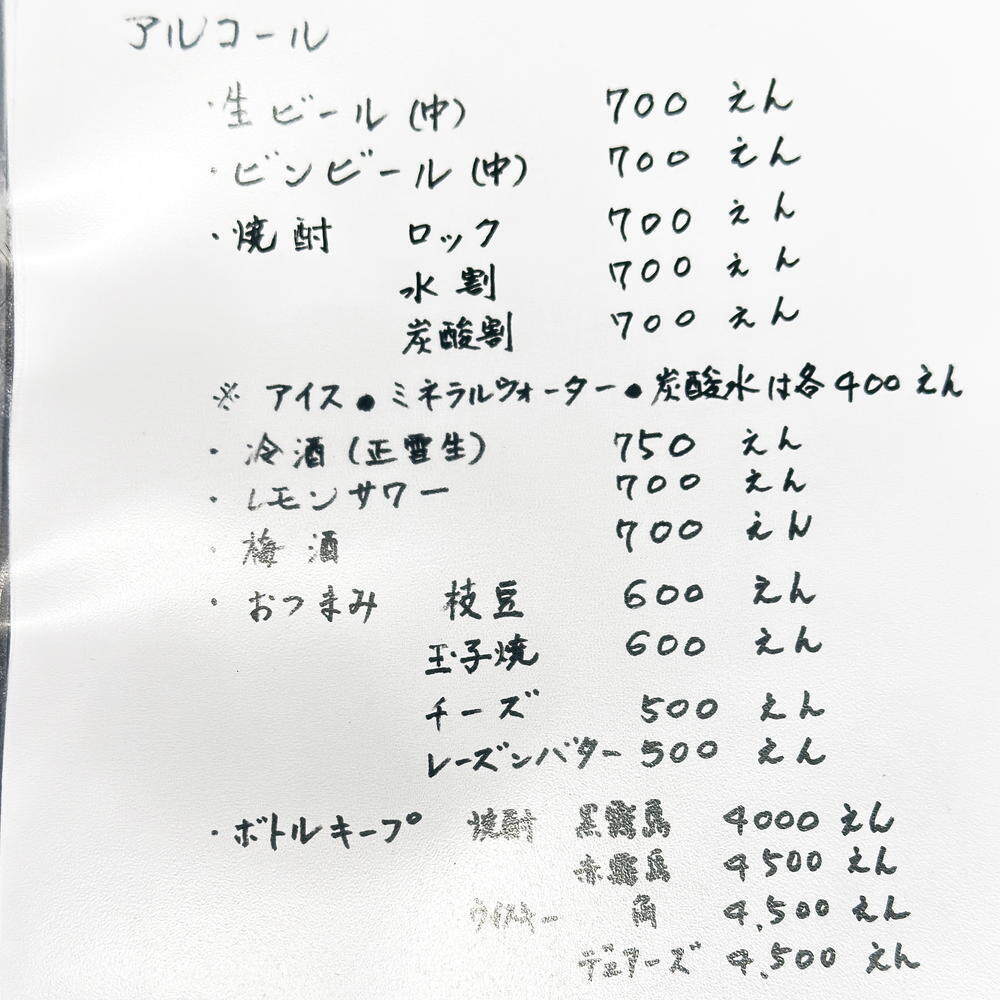 アルコール
・生ビール(中) 700 えん
・ビンビール(中) 700 えん
・焼酎 ロック 700 えん
水割 700 えん
炭酸割 700 えん
※ アイス●ミネラルウォーター●炭酸水は各400えん
・冷酒(正雪生) 750 えん
・レモンサワー 700 えん
・梅酒 700 えん
・おつまみ 枝豆 600 えん
玉子焼 600 えん
チーズ 500 えん
レーズンバター 500 えん
・ボトルキープ 焼酎 黒霧島 4000 えん
赤霧島 4500 えん
ウイスキー 角 4,500 えん
デュアーズ 4,500 えん